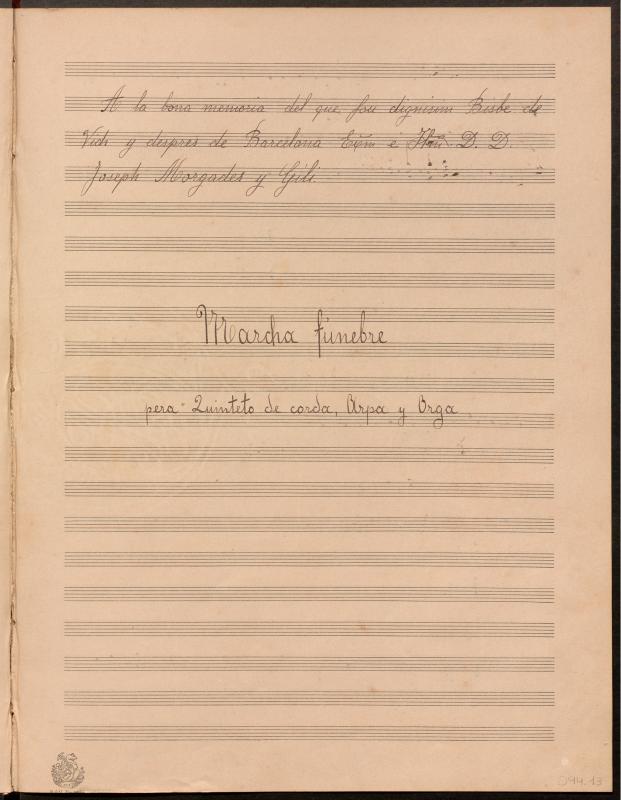 A la bona memoria del que fou dignisim Bisbe de
Vich y despres de Barcelona Exm e Illm D. D.
Joseph Morgades y Gili.
Marcha fúnebre
pera Quinteto de corda, Arpa y Orga
094.13